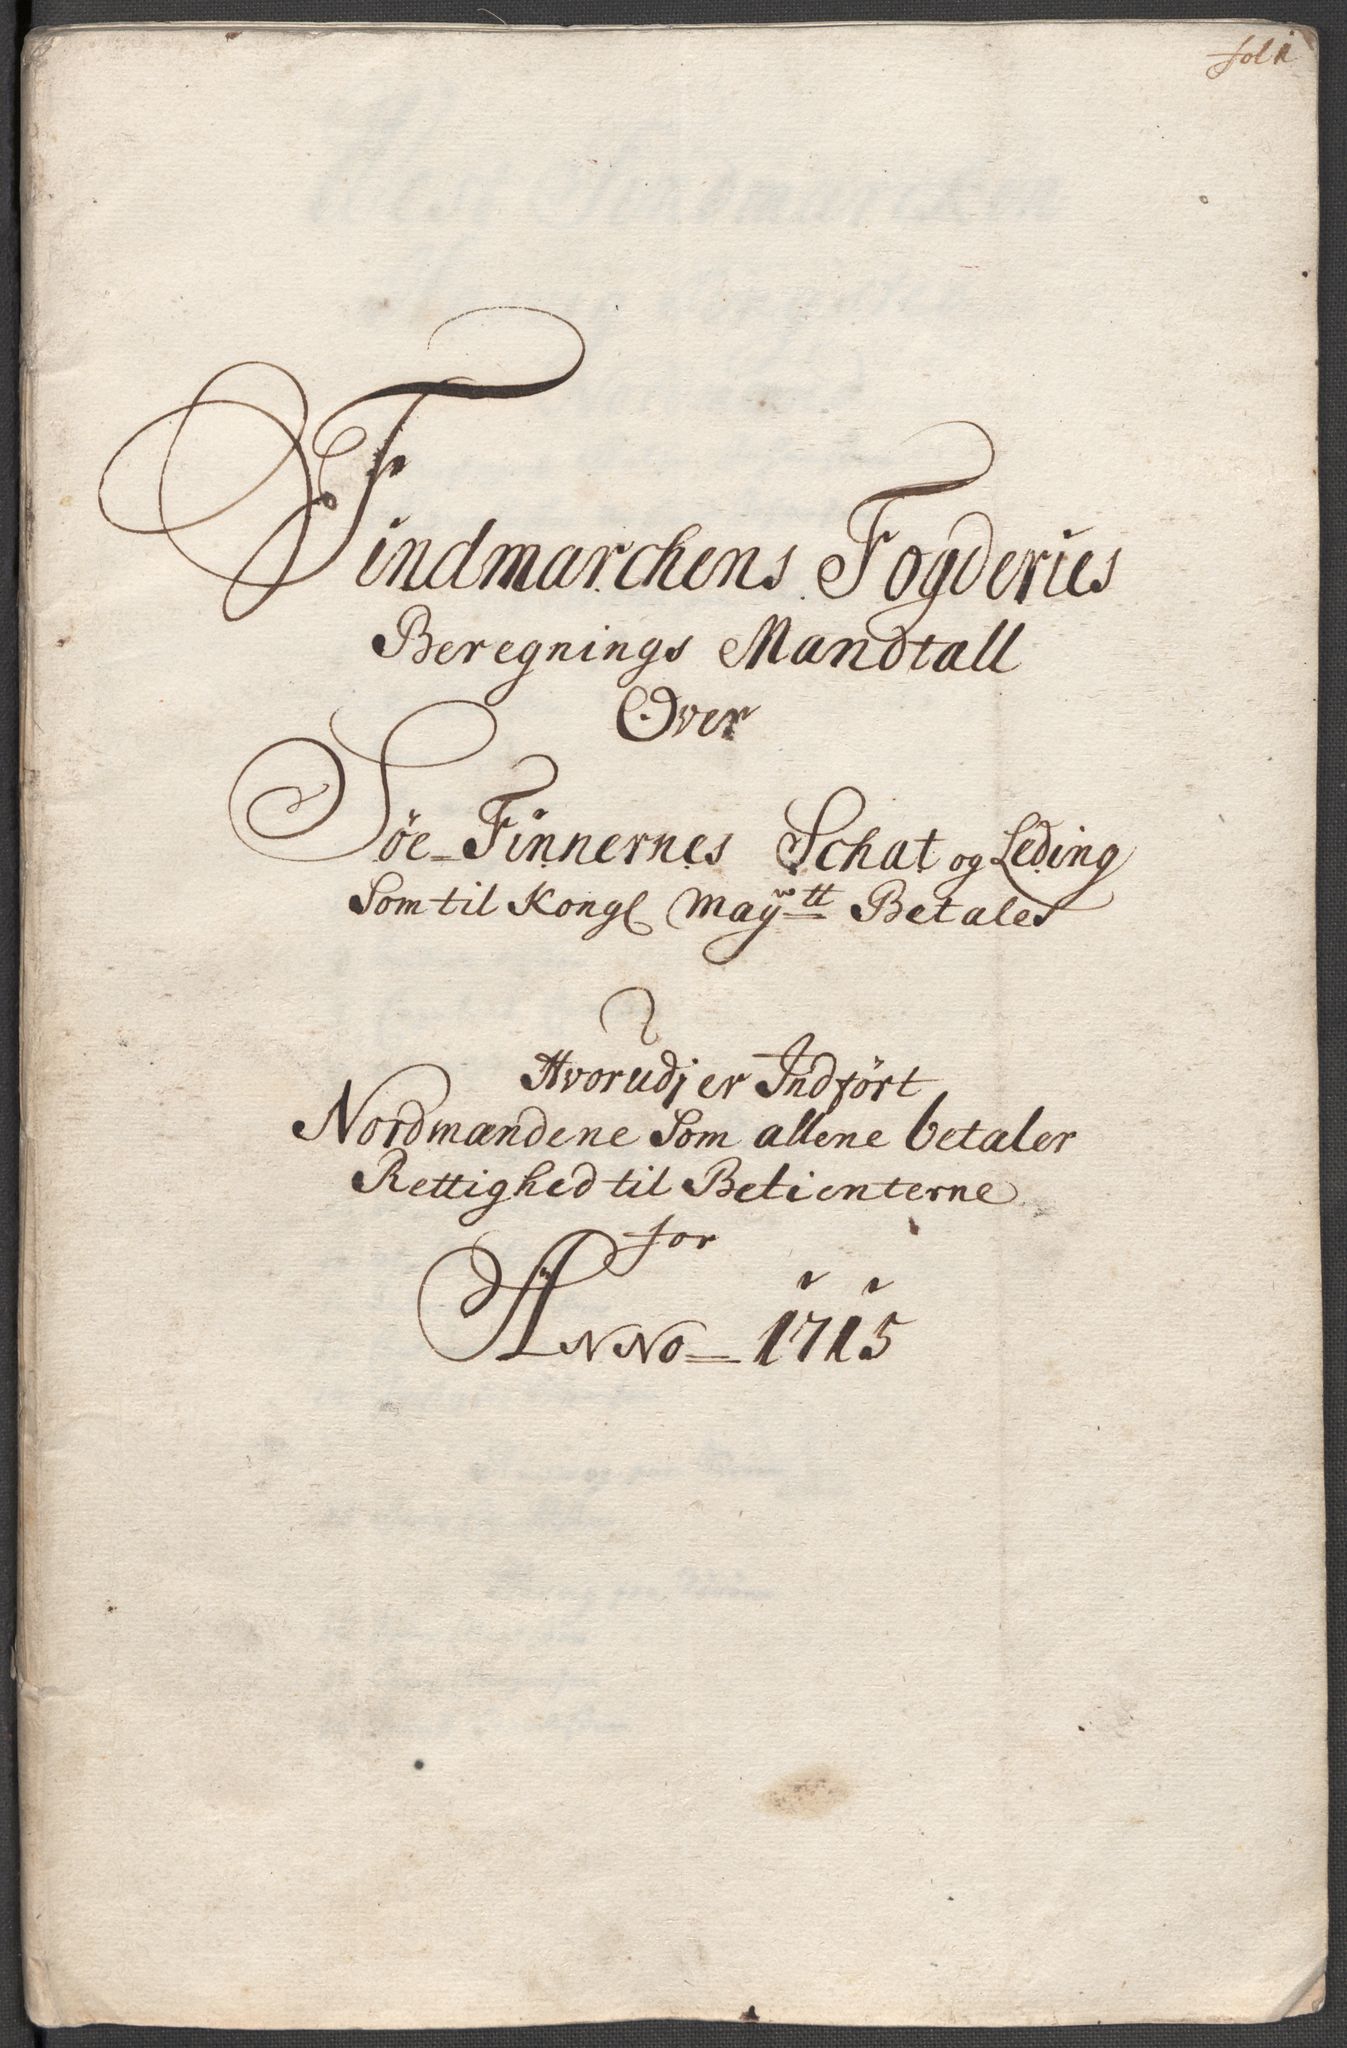 fol 1
Findmarchens Fogderies
Beregnings Mandtall
Over
Söe-Finnernes Schat og Leding
Som til Kongl Mayᵗᵗ Betales
Hvorudj er Indført
Nordmændene Som allene betaler
Rettighed til Betienterne
for
ANNO 1715